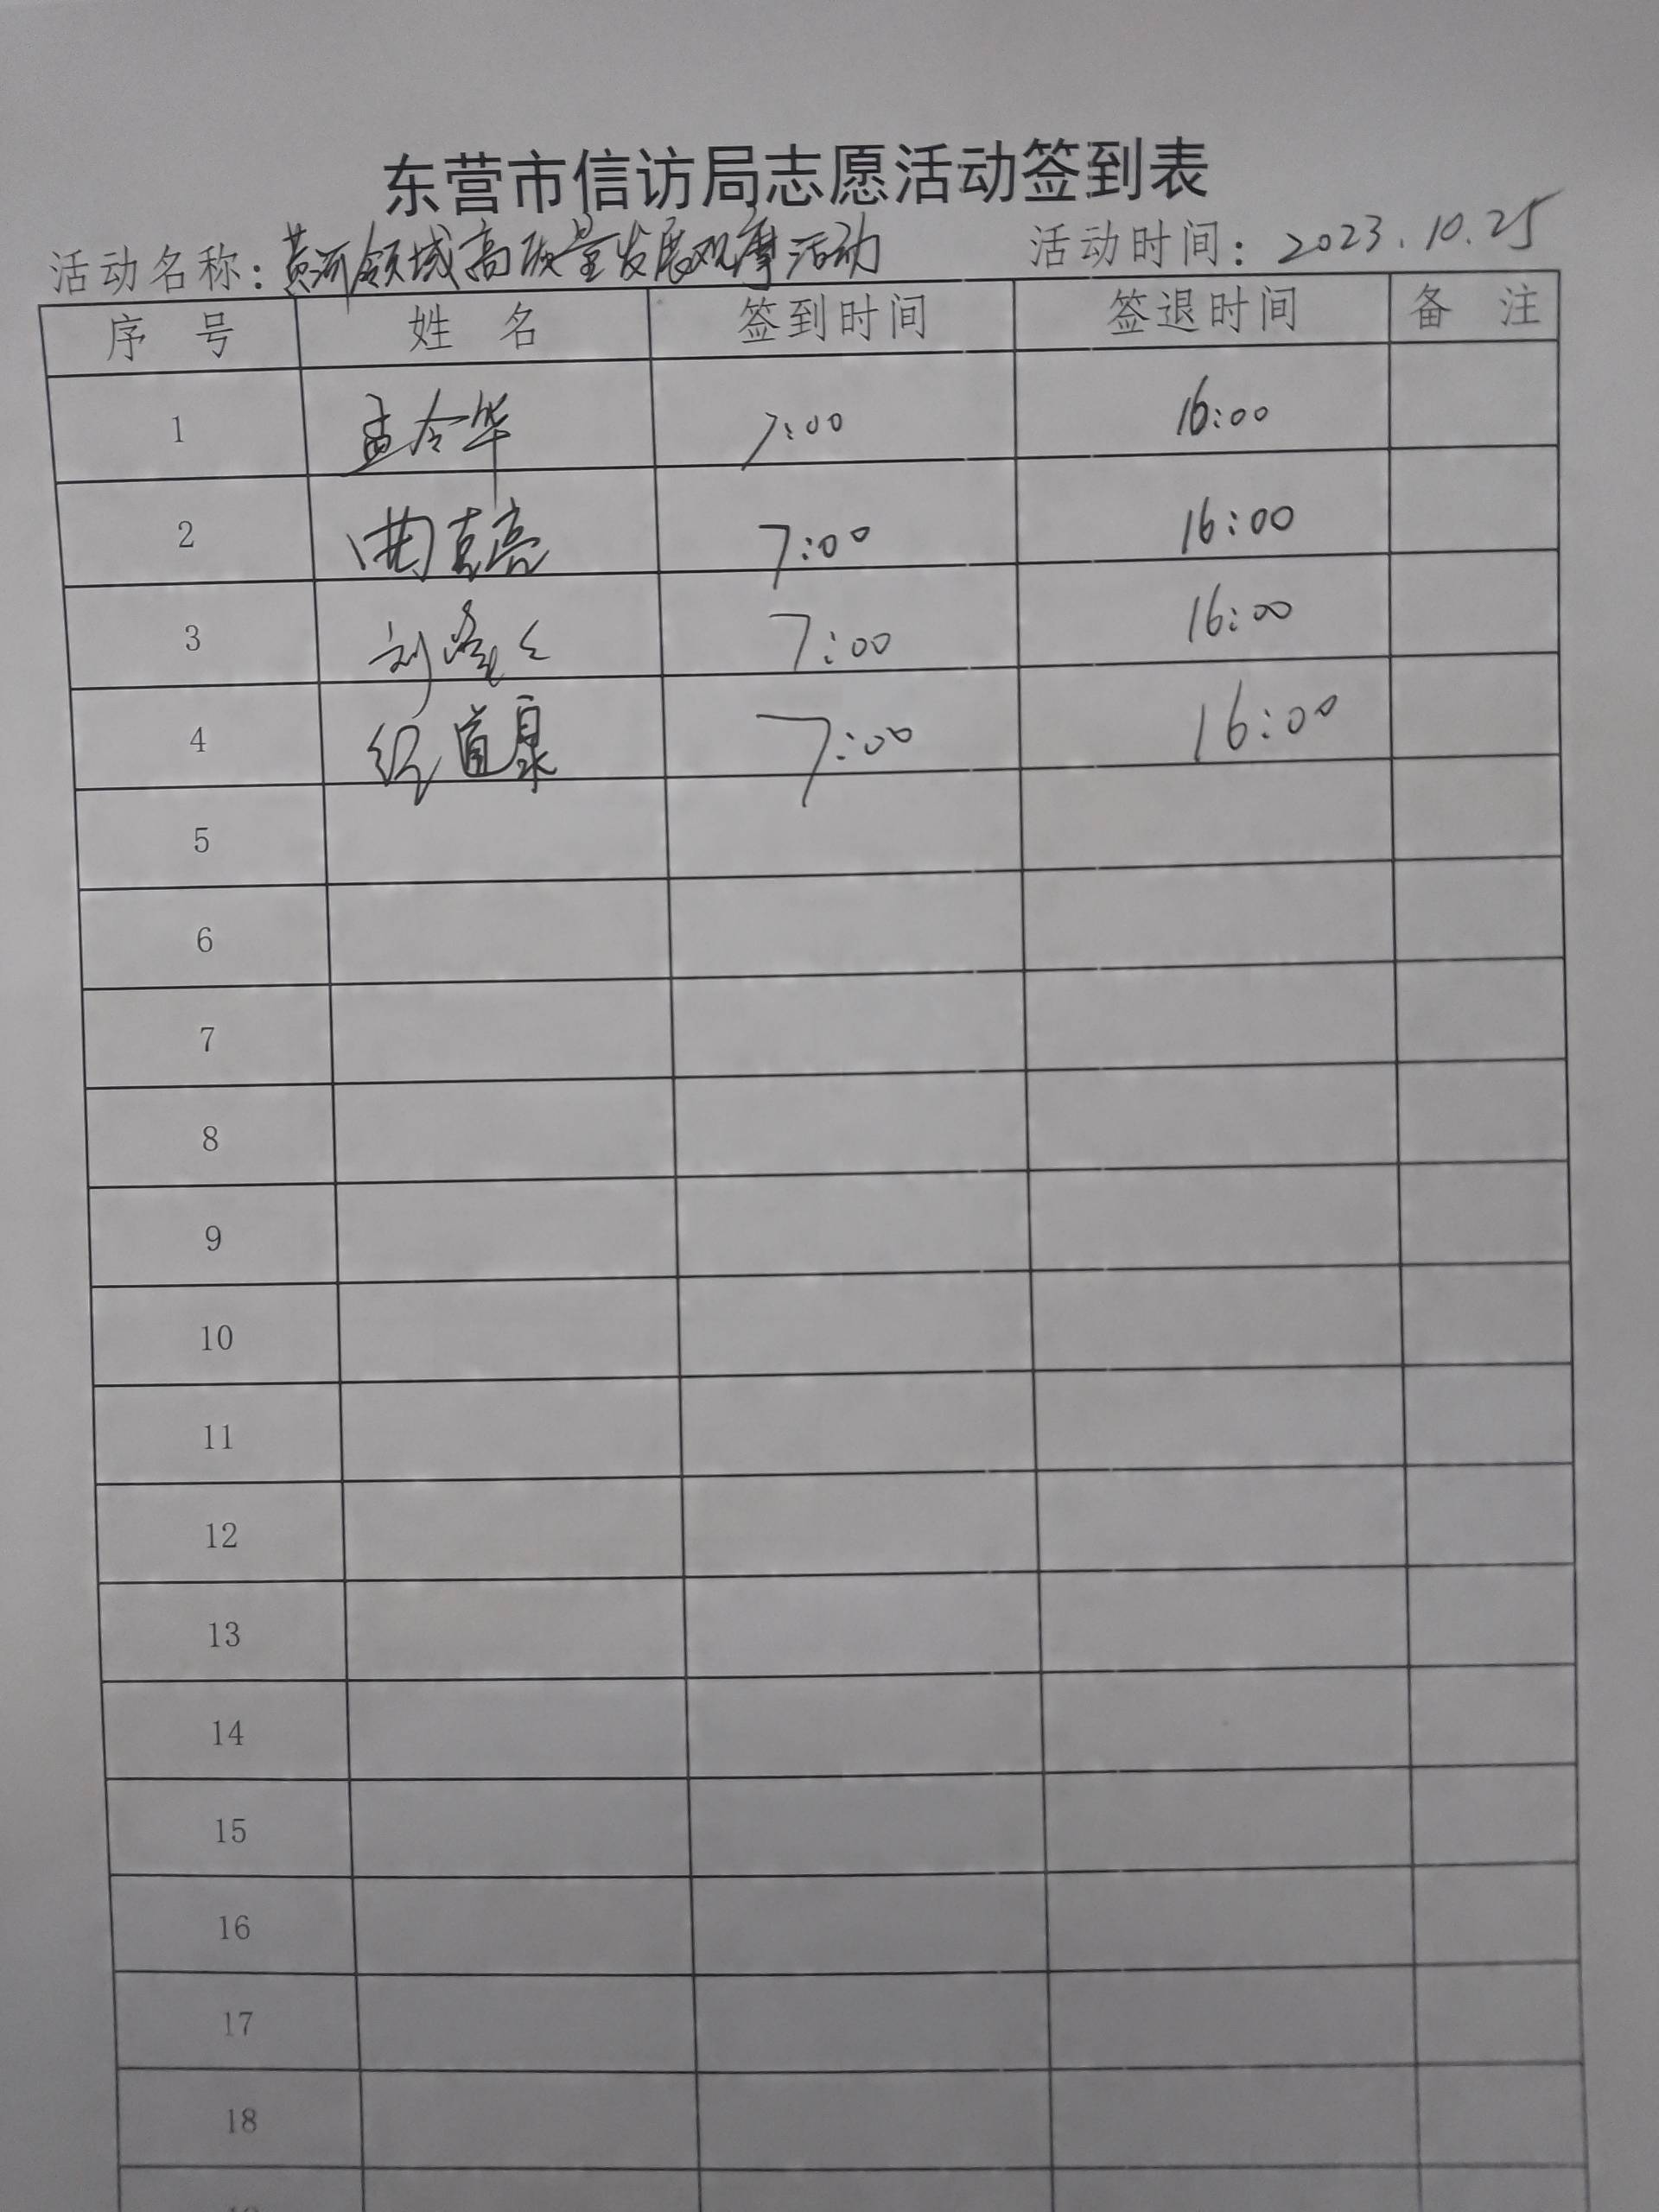 东营市信访局志愿活动签到表
活动名称：黄河领域高质量发展观摩活动 活动时间：2023.10.25
序 号 姓 名 签到时间 签退时间 备 注
1 孟令华 7:00 16:00
2 曲克亮 7:00 16:00
3 刘 7:00 16:00
4 纪道康 7:00 16:00
5
6
7
8
9
10
11
12
13
14
15
16
17
18